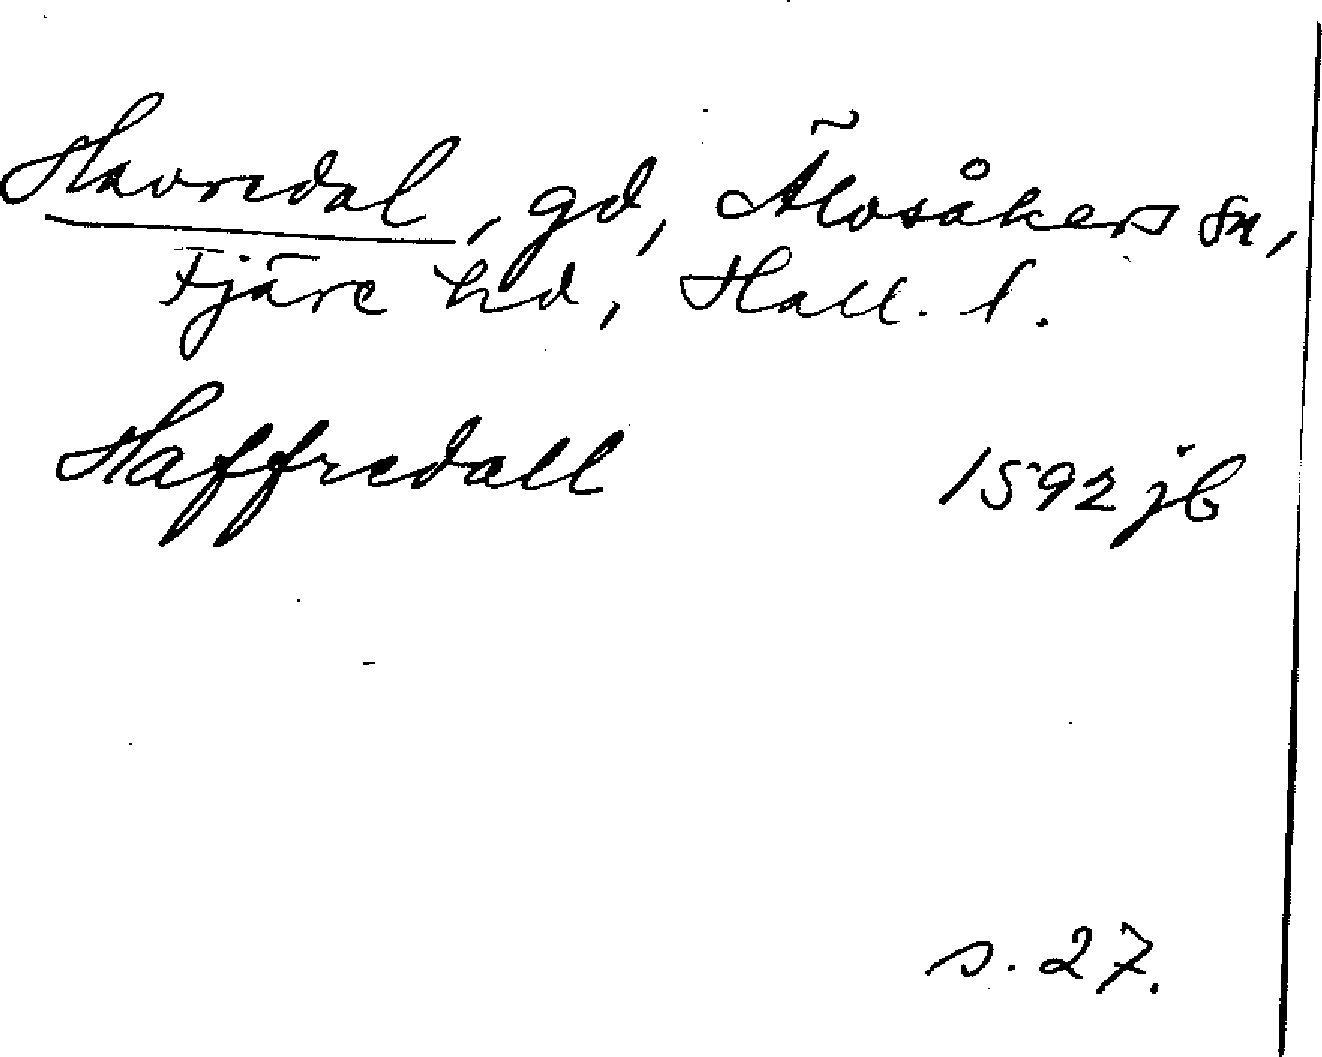 Havredal, gd, Älvsåkers sn,
Fjäre hd, Hall. l.
Haffredall 1592 jb
s. 27.